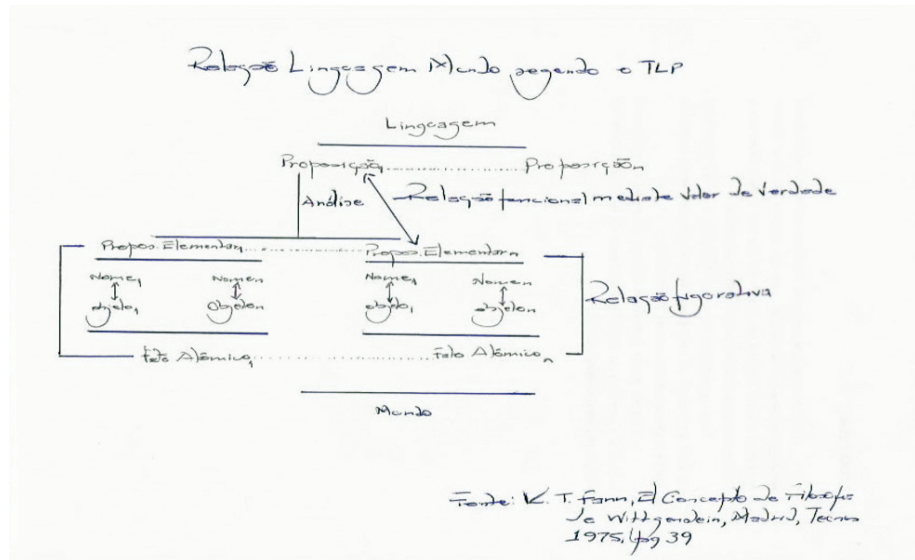 Relação Linguagem Mundo segundo o TLP
Linguagem
Proposição₁ .................. Proposiçãoₙ
Análise
Relação funcional mediante Valor de Verdade
Propos. Elementar₁ .................. Propos. Elementarₙ
Nome₁ Nomeₙ Nome₁ Nomeₙ
objeto₁ Objetoₙ objeto₁ objetoₙ
Relação figurativa
Fato Atômico₁ .................. Fato Atômicoₙ
Mundo
Fonte: K. T. Fann, El Concepto de Filosofia
de Wittgenstein, Madrid, Tecnos
1975, pg 39